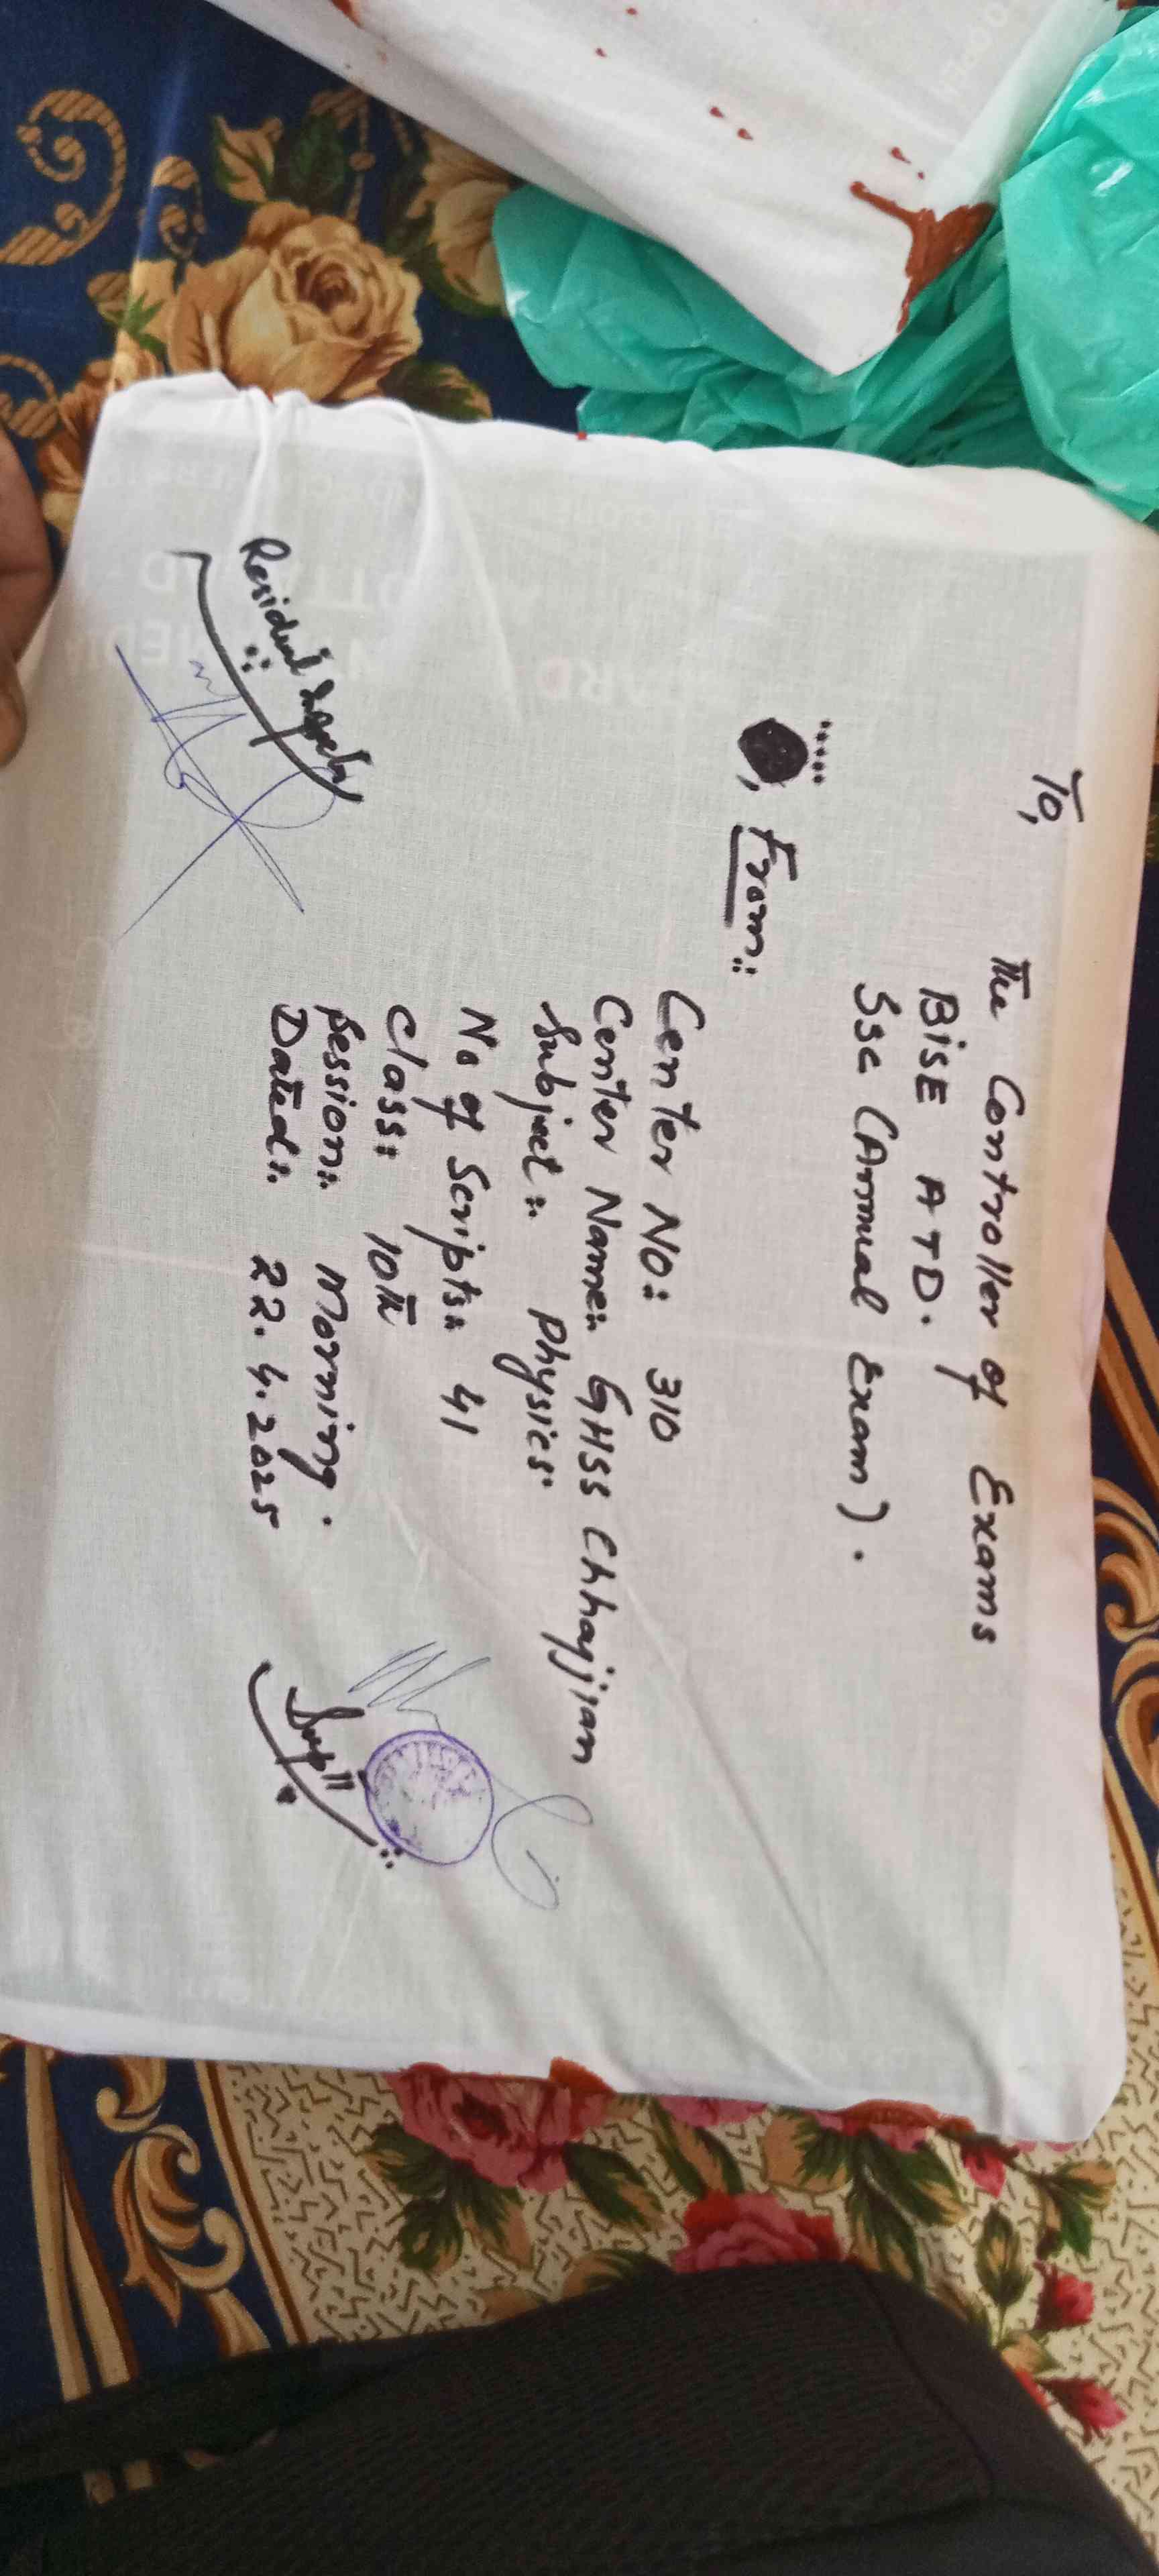 To,
The Controller of Exams
BISE ATD.
SSC (Annual Exam).
Exam:
Center NO: 310
Center Name: GHSS Chhajjian
Subject: Physics.
No of Scripts: 41
Class: 10th
Session: Morning.
Dated: 22.4.2025
Resident
Supdt